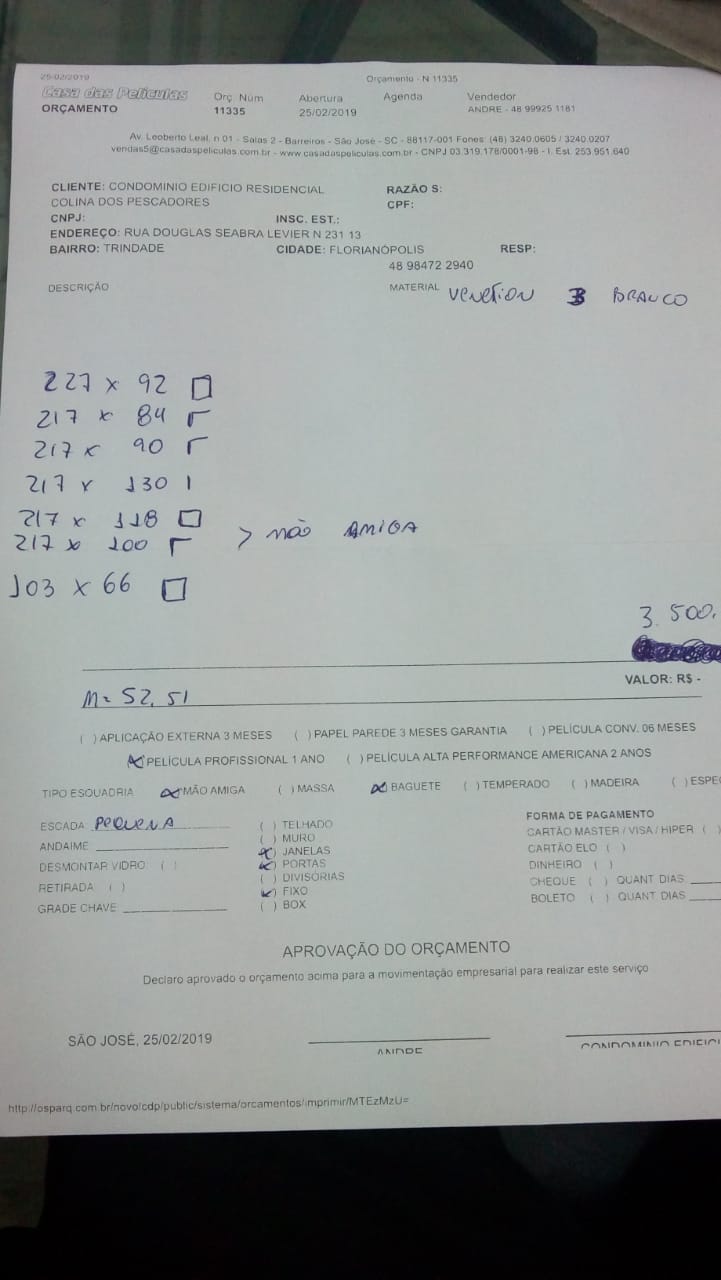 25/02/2019 Orçamento - N 11335
Casa das Películas Orç. Núm Abertura Agenda Vendedor
ORÇAMENTO 11335 25/02/2019 ANDRE - 48 99925 1181
Av. Leoberto Leal, n 01 - Salas 2 - Barreiros - São José - SC - 88117-001 Fones: (48) 3240.0605 / 3240.0207
vendas5@casadaspeliculas.com.br - www.casadaspeliculas.com.br - CNPJ 03.319.178/0001-98 - I. Est. 253.951.640
CLIENTE: CONDOMINIO EDIFICIO RESIDENCIAL RAZÃO S:
COLINA DOS PESCADORES CPF:
CNPJ: INSC. EST.:
ENDEREÇO: RUA DOUGLAS SEABRA LEVIER N 231 13
BAIRRO: TRINDADE CIDADE: FLORIANÓPOLIS RESP:
48 98472 2940
DESCRIÇÃO MATERIAL Venetion B BRANCO
227 x 92
217 x 84
217 x 90
217 x 130
217 x 118
217 x 100 > não AMIGA
103 x 66
3.500,
VALOR: R$ -
M= 52,51
( ) APLICAÇÃO EXTERNA 3 MESES ( ) PAPEL PAREDE 3 MESES GARANTIA ( ) PELÍCULA CONV. 06 MESES
(x) PELÍCULA PROFISSIONAL 1 ANO ( ) PELÍCULA ALTA PERFORMANCE AMERICANA 2 ANOS
TIPO ESQUADRIA (x) MÃO AMIGA ( ) MASSA (x) BAGUETE ( ) TEMPERADO ( ) MADEIRA ( ) ESPE
ESCADA PEQUENA ( ) TELHADO FORMA DE PAGAMENTO
ANDAIME ( ) MURO CARTÃO MASTER / VISA / HIPER ( )
DESMONTAR VIDRO: ( ) (x) JANELAS CARTÃO ELO ( )
RETIRADA ( ) (x) PORTAS DINHEIRO ( )
GRADE CHAVE ( ) DIVISÓRIAS CHEQUE ( ) QUANT DIAS
(x) FIXO BOLETO ( ) QUANT DIAS
( ) BOX
APROVAÇÃO DO ORÇAMENTO
Declaro aprovado o orçamento acima para a movimentação empresarial para realizar este serviço
SÃO JOSÉ, 25/02/2019
ANDRE CONDOMINIO EDIFICI
http://osparq.com.br/novo/cdp/public/sistema/orcamentos/imprimir/MTEzMzU=